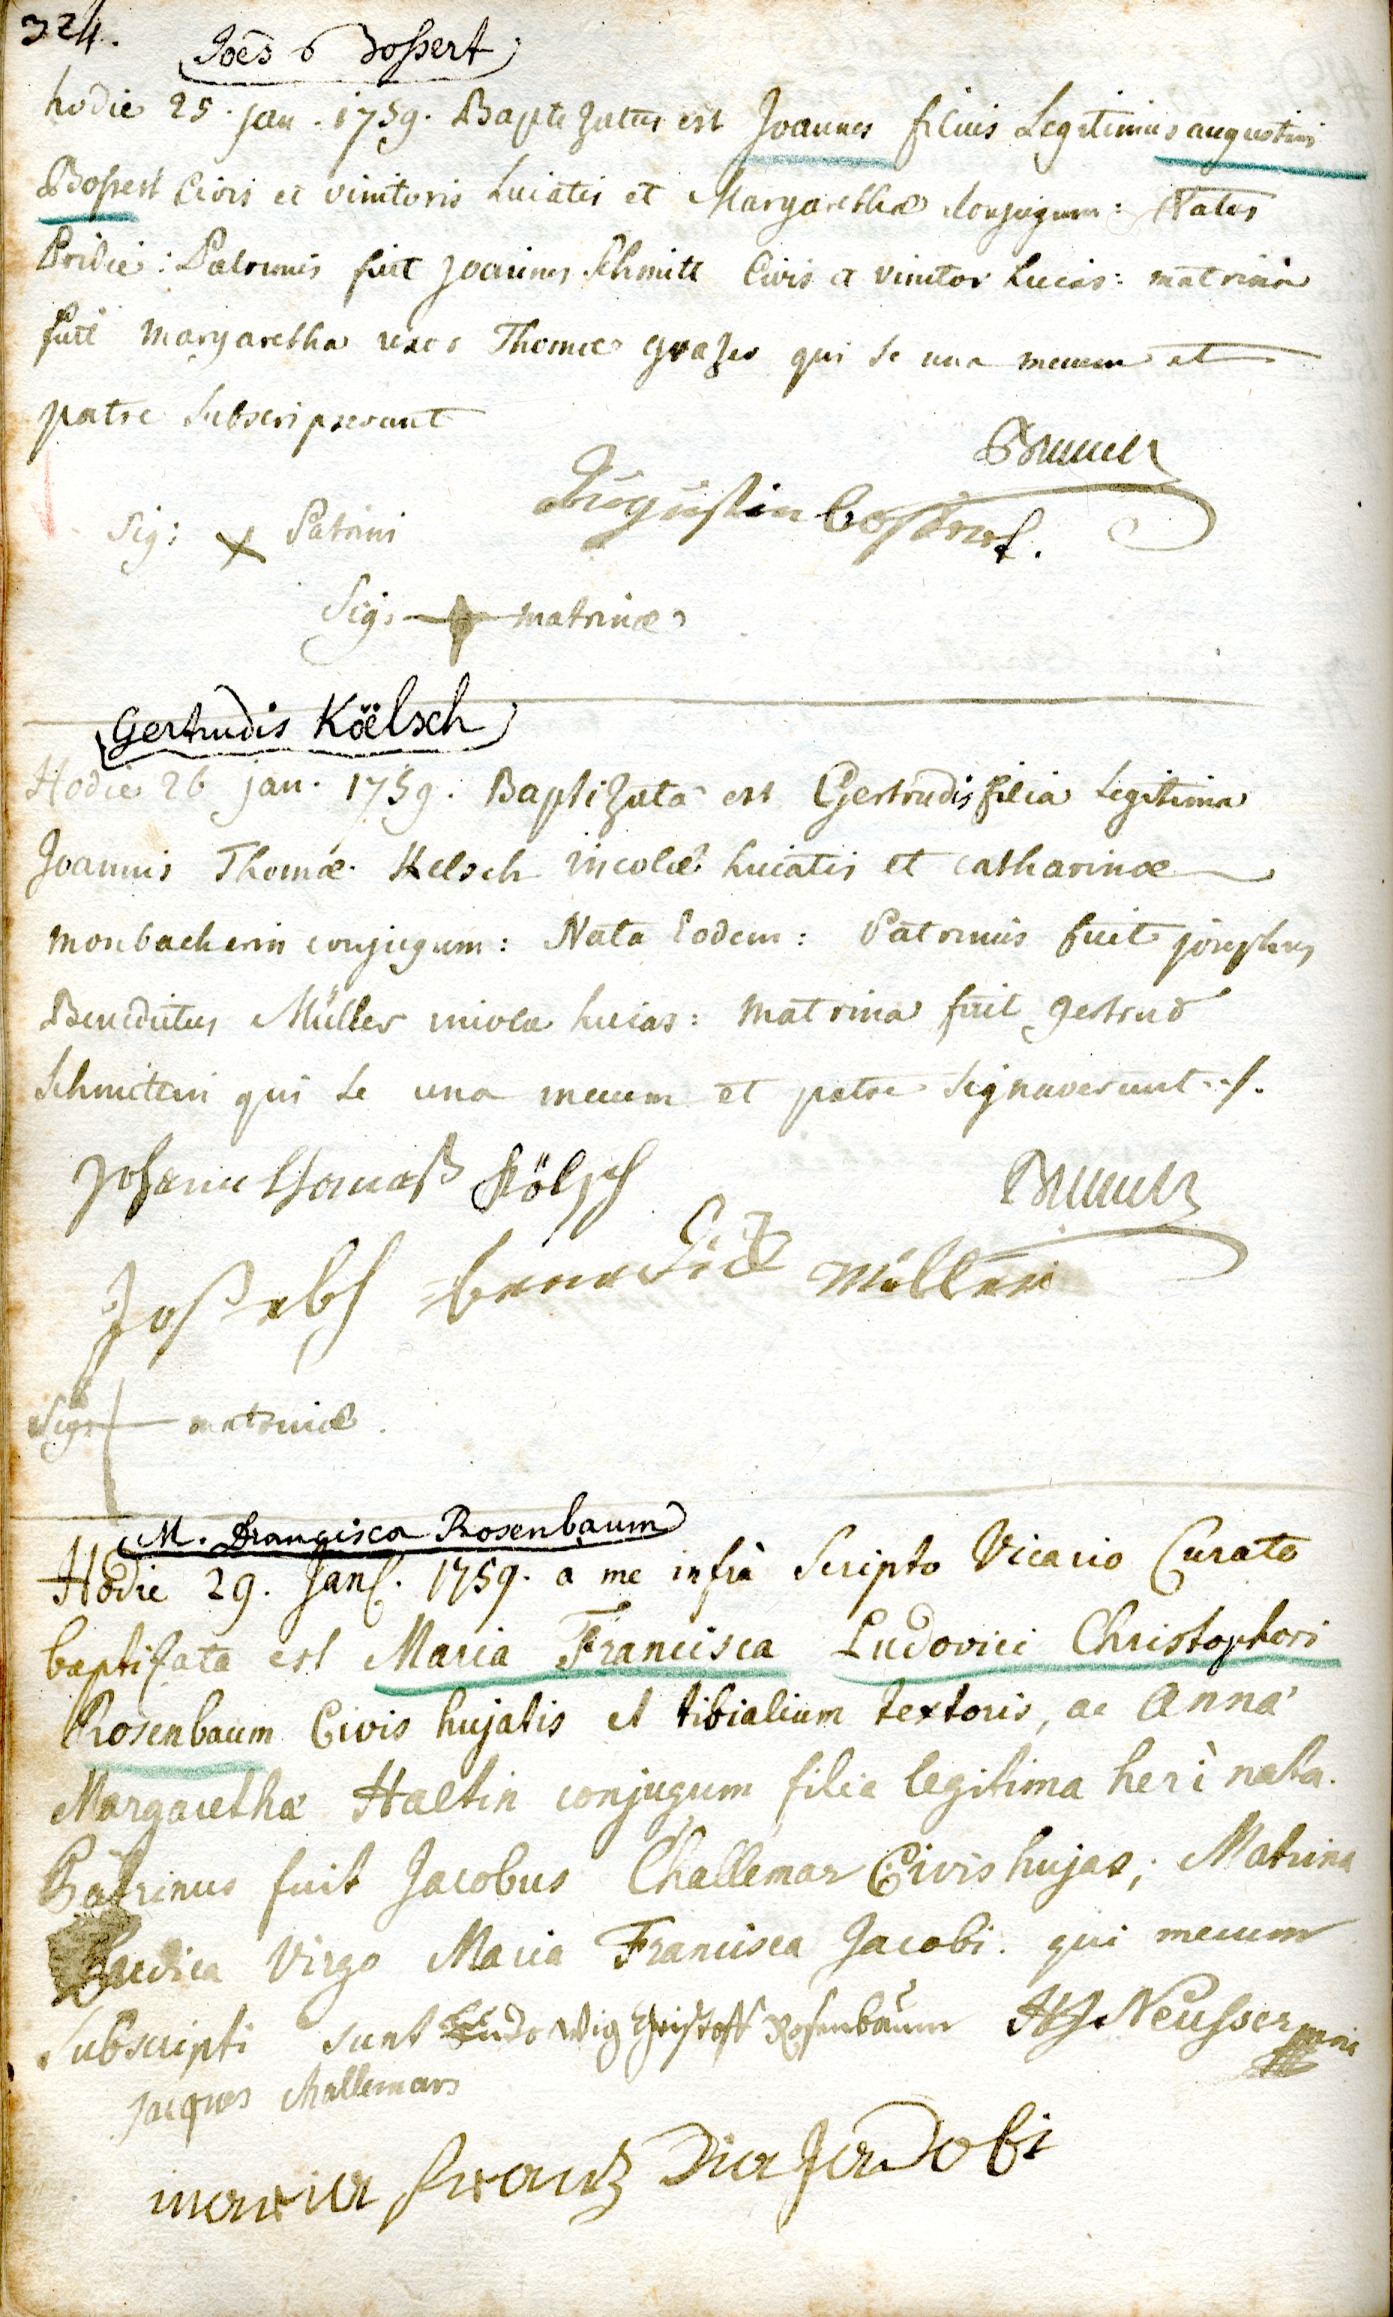 324.
Joes Bossert
hodie 25. jan. 1759. Baptizatus est Joannes filius Legitimus augustini
Bossert Civis et vinitoris huiatis et Margarethæ Conjugum: Natus
Pridie: Patrinus fuit Joannes Schmitt Civis et vinitor huias: matrina
fuit Margaretha uxor Thomæ grazer qui se una mecum et
patre subscripserunt
Brunck
Augustin Bossert.
Sig: x Patrini
Sig: + matrinæ
Gertrudis Köelsch
Hodie 26 jan. 1759. Baptizata est Gertrudis filia legitima
Joannis Thomæ Kelsch incolæ huiatis et catharinæ
monbacherin conjugum: Nata Eodem: Patrinus fuit josephus
Benedictus Müller incola huias: matrina fuit gertrud
Schmitten qui se una mecum et patre signaverunt ./.
Johann thomaß Kölsch
Brunck
Joßebh benedick Müller
Sig: + matrinæ.
M. Francisca Rosenbaum
Hodie 29. Jan. 1759. a me infrà Scripto Vicario Curato
baptisata est Maria Francisca Ludovici Christophori
Rosenbaum Civis hujatis et tibialium textoris, ac Anna
Margaretha Haltin conjugum filia legitima herì nata.
Patrinus fuit Jacobus Challemar Civis hujas; Matrina
Pudica Virgo Maria Francisca Jacobi. qui mecum
Subscripti sunt Ludowig Christoff Rosenbaum Neusser
Jacques challemars
maria frantz Dia Jacobi